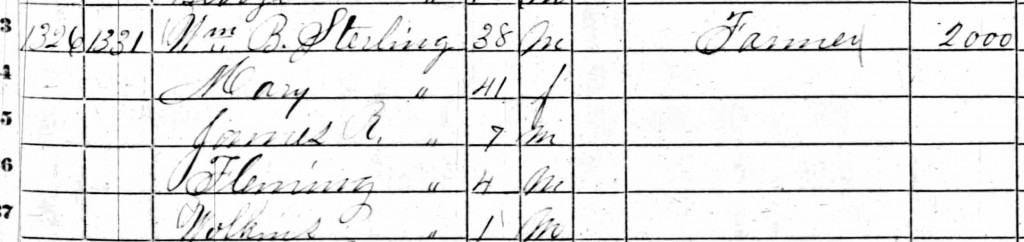 3 1326 1331 Wm B. Sterling 38 m Farmer 2000
Mary " 41 f
5 James R. " 7 m
6 Fleming " 4 m
37 " 1 m